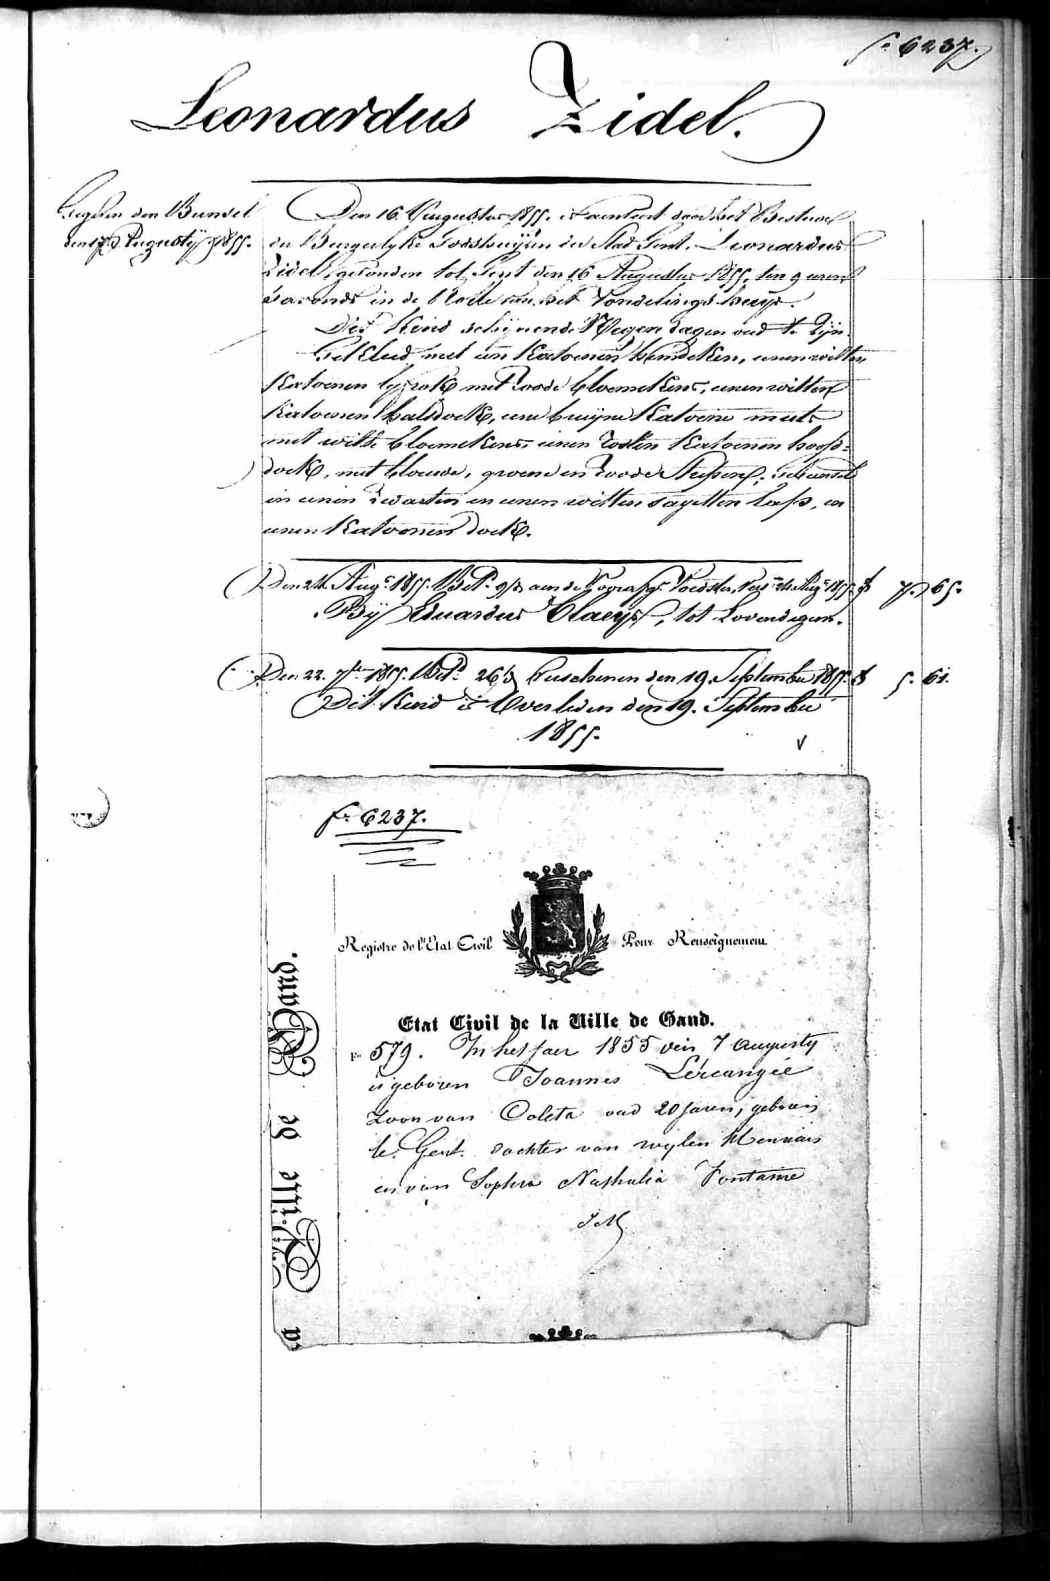 f.° 6237.
Leonardus Zidel.
Den 16. Augustus 1855. is door het Bestuur
der Burgerlyke Godshuijzen der Stad Gent. Leonardus
Zidel, gevonden tot Gent den 16 Augustus 1855. ten 9 uren
s'avonds in de van het Vondelings-huys.
Dit Kind schijnende Negen dagen oud te Zijn.
Gekleed met een Katoenen hemdeken, eenen witten
Katoenen lyfrok met Roode bloemekens, eenen witten
Katoenen halsdoek, eene bruyne Katoene muts
met witte bloemekens, eenen Katoenen hoofd=
doek, met blauwe, groene en Roode Strepen,
in eenen Zwarten en eenen witten sayetten lap, en
eenen Katoenen doek.
Den 24. Aug.s 1855. Bet.d 9/d aen de 7. 65.
Bij Eduardus Claeys, tot Lovendegem.
Den 22. 7bre 1855. Bet.d 26/d den 19. September 1855. 5. 61.
Dit Kind is Overleden den 19. September
1855.
f.° 6237.
Registre de l'Etat Civil Pour Renseignement
Etat Civil de la Ville de Gand.
N° 579. In het jaer 1855 den 7 augusty
is geboren Joannes
zoon van Coleta oud 20 jaren, geboren
te Gent. dochter van wylen
en van Sophia Nathalia Fontaine
Ville de Gand.